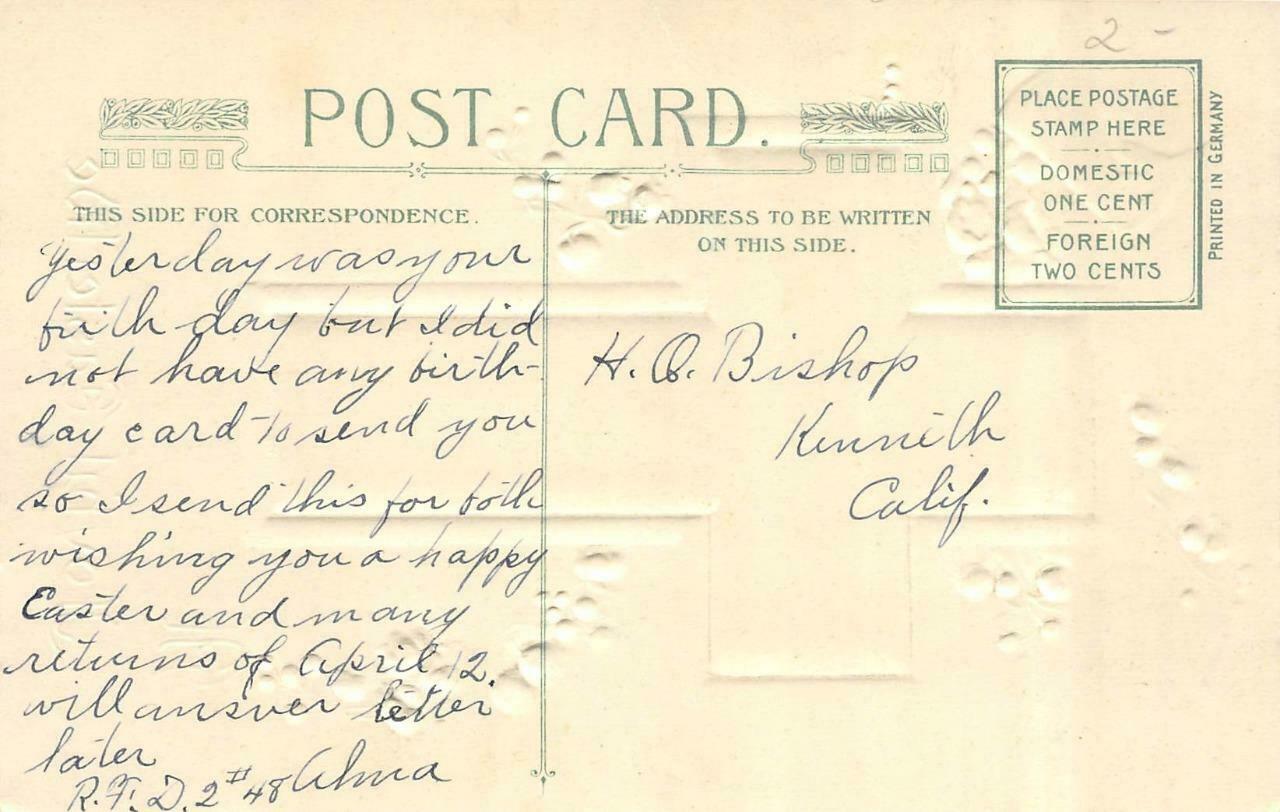 2 -
POST CARD.
PLACE POSTAGE
STAMP HERE
DOMESTIC
ONE CENT
FOREIGN
TWO CENTS
PRINTED IN GERMANY
THIS SIDE FOR CORRESPONDENCE.
Yesterday was your
birth day but I did
not have any birth-
day card to send you
so I send this for both
wishing you a happy
Easter and many
returns of April 12.
will answer letter
later
R.F.D. 2 # 48 Alma
THE ADDRESS TO BE WRITTEN
ON THIS SIDE.
H. O. Bishop
Kennith
Calif.